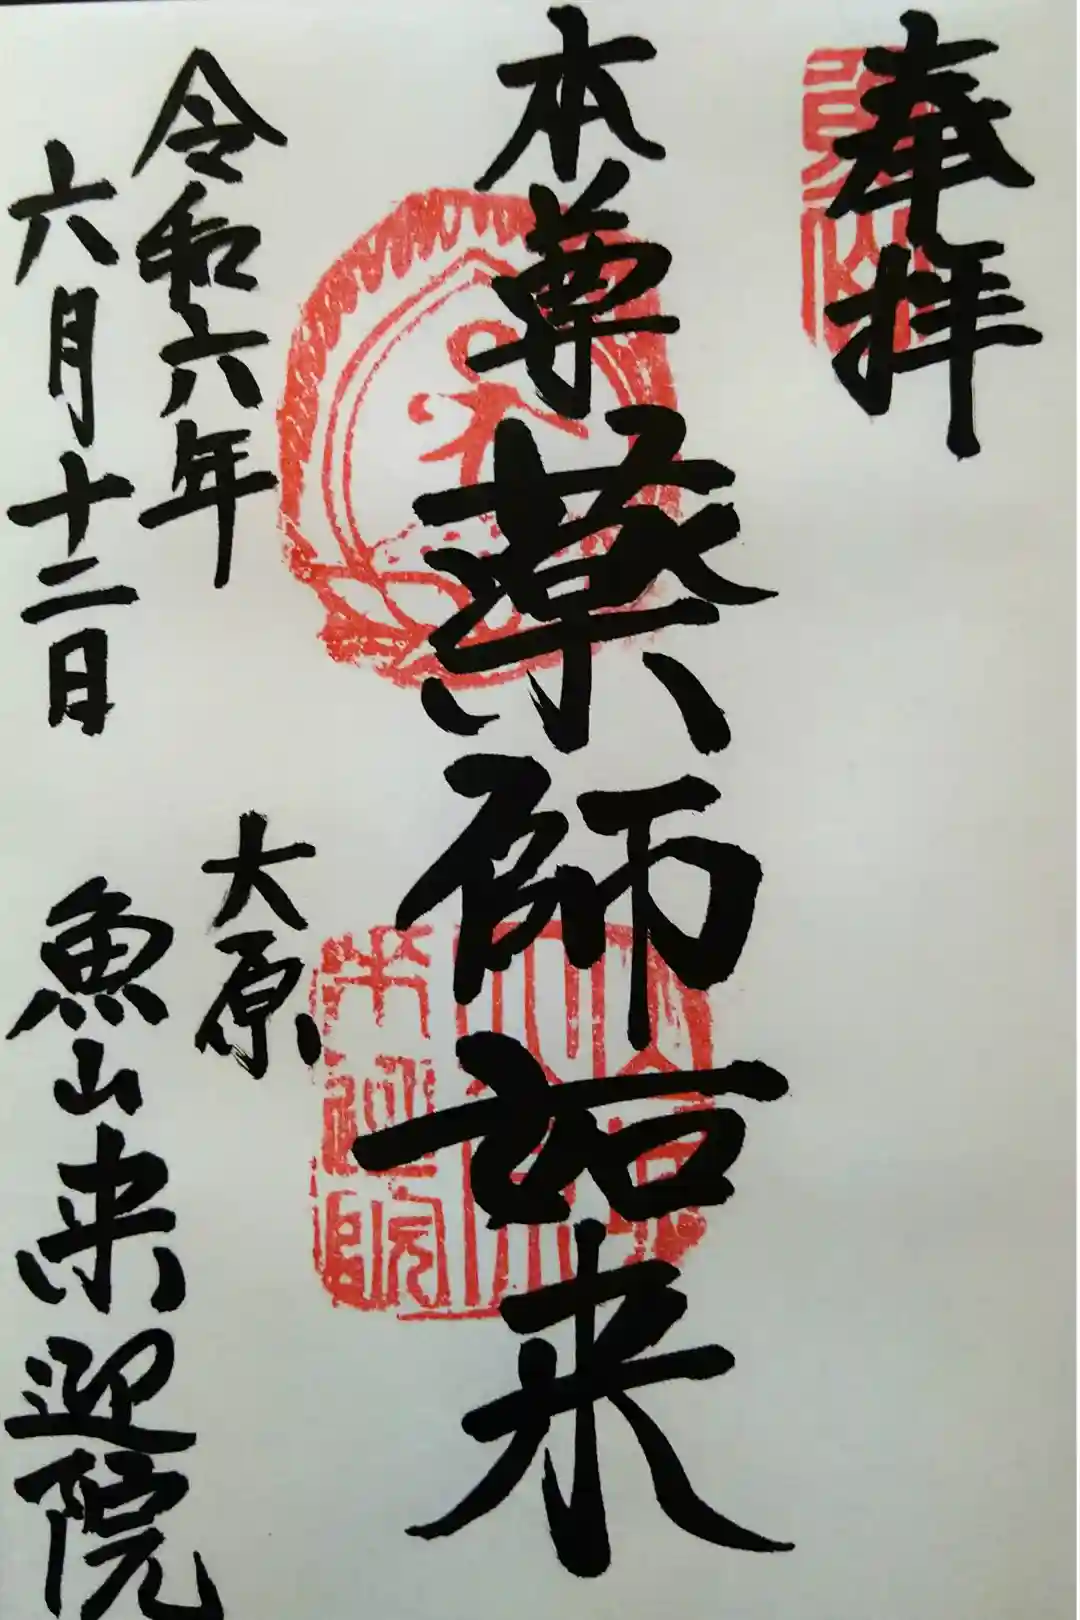 奉拝
本尊薬師如来
令和六年
六月十二日
大原
魚山来迎院
魚山
来迎院